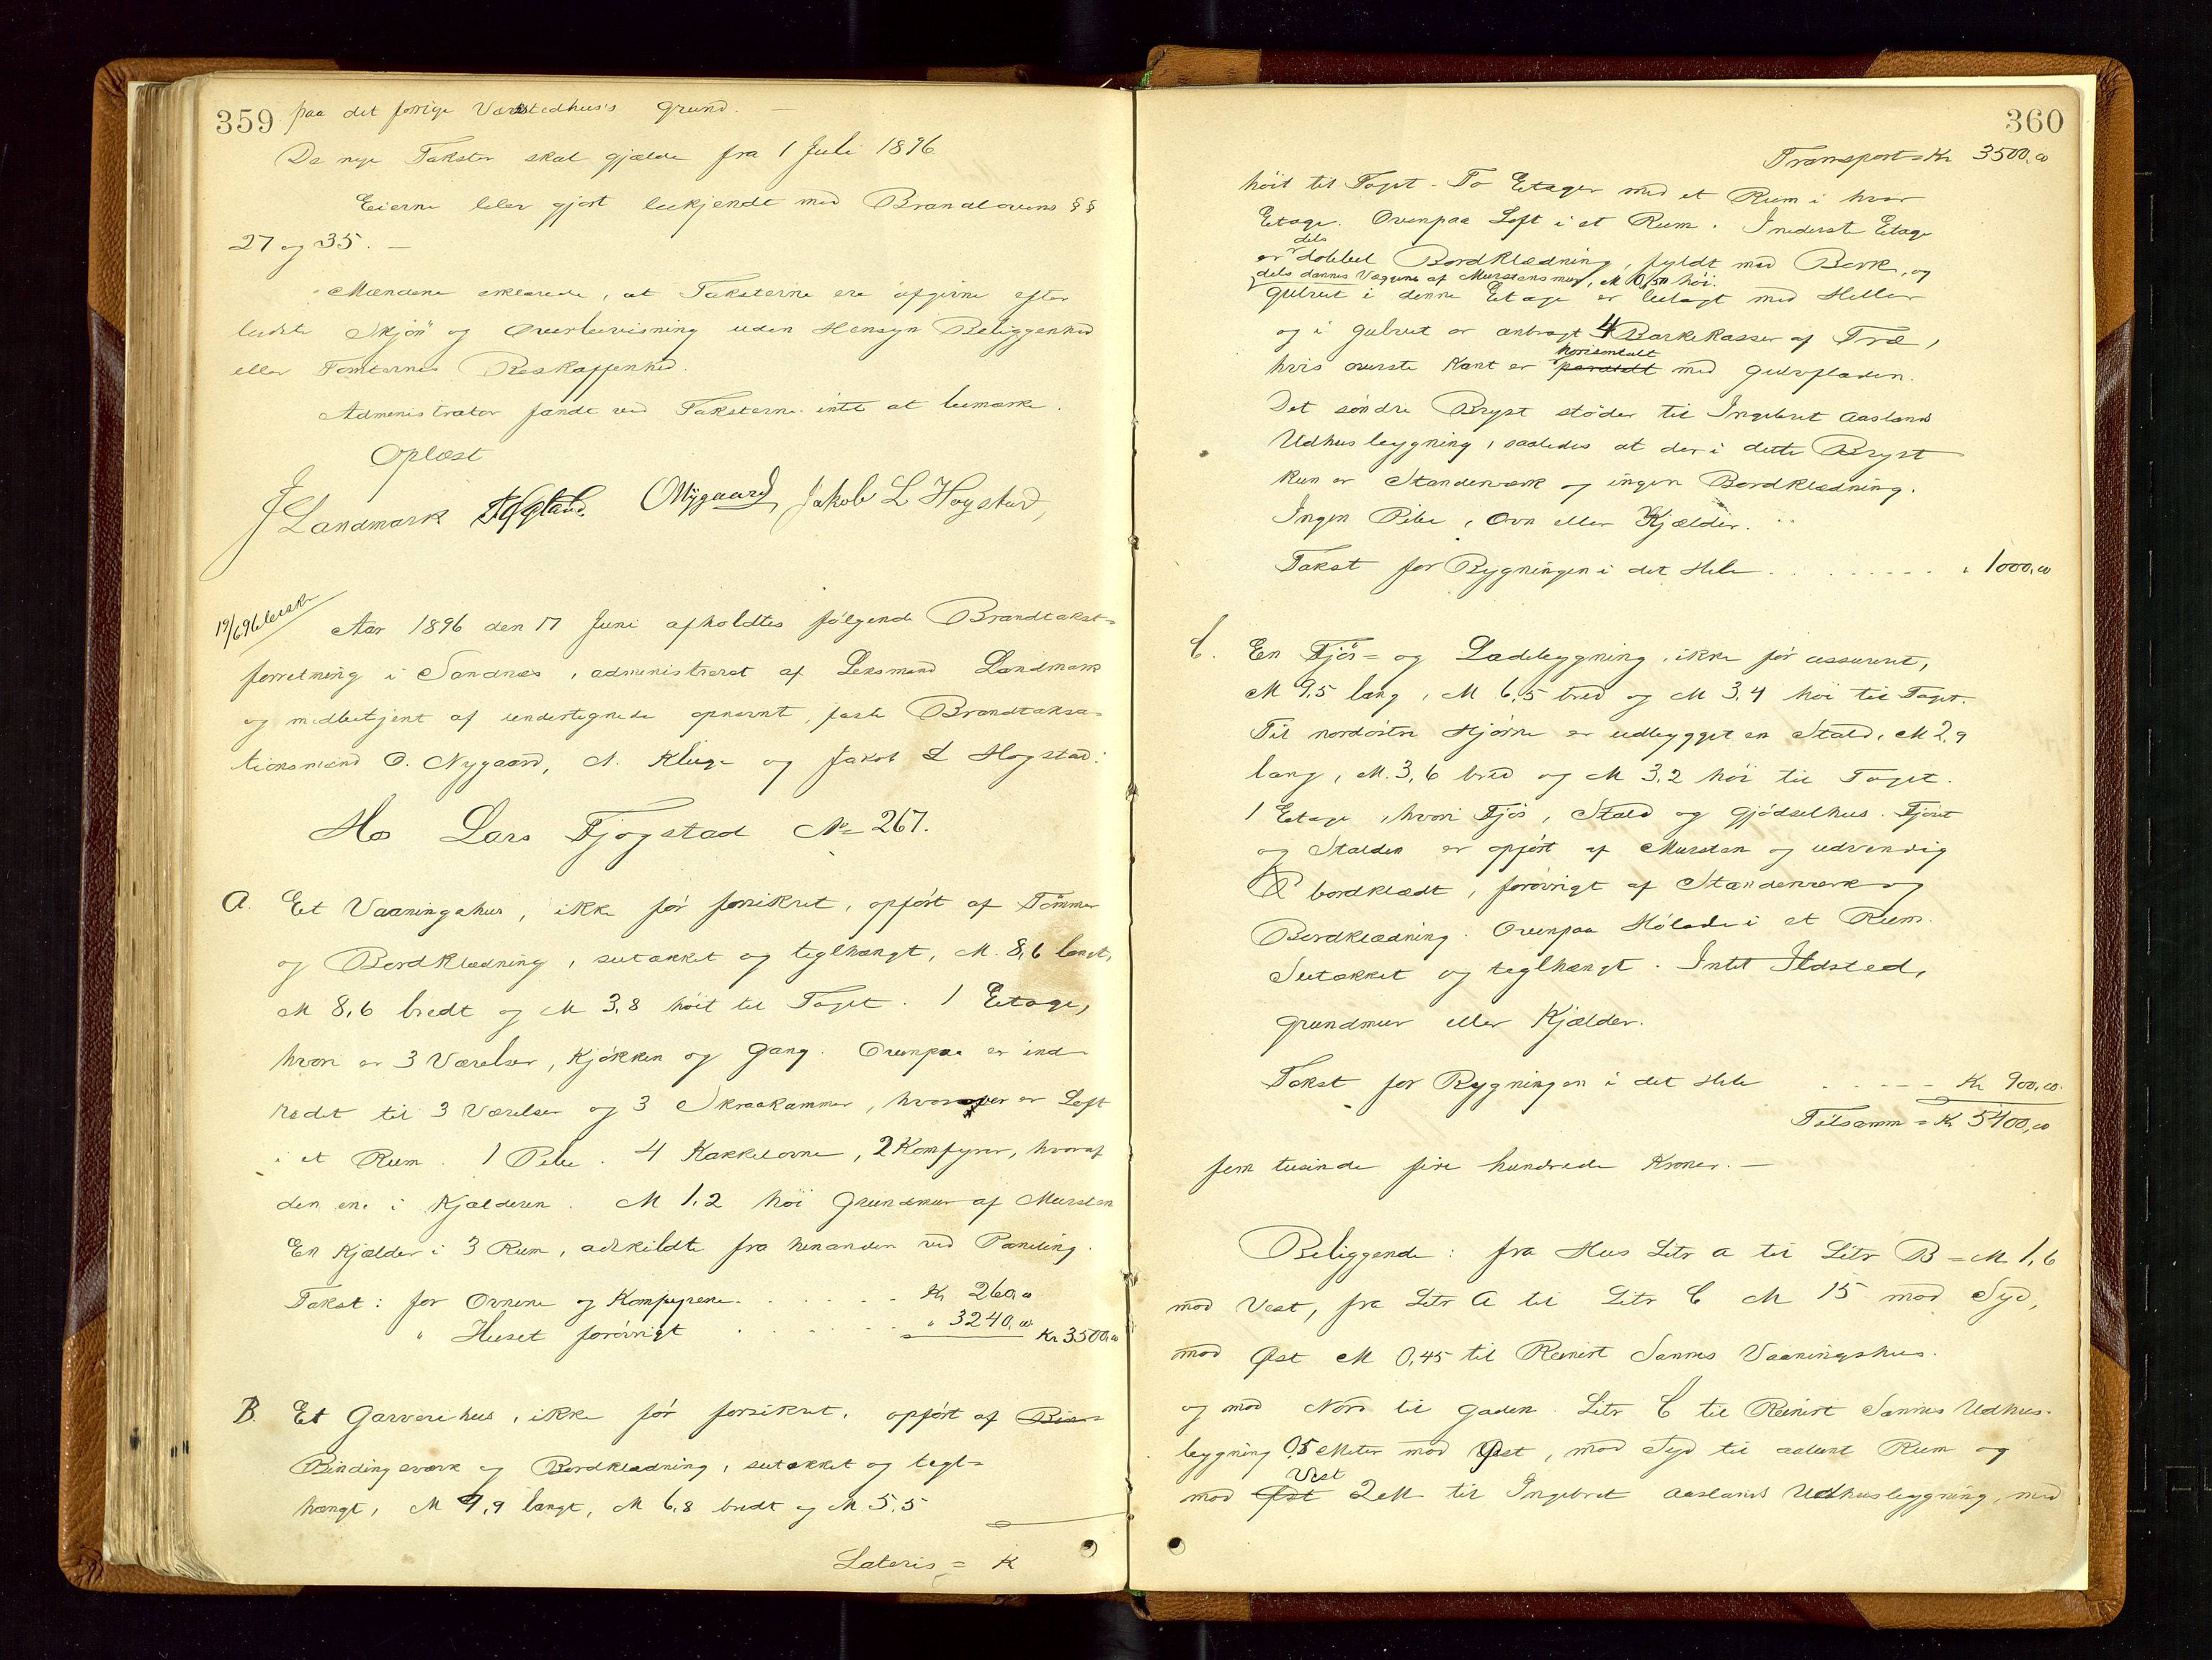 359 paa det forrige Værkstedhus's Grund. —
De nye Takster skal gjælde fra 1 Juli 1896.
Eierne blev gjort bekjendt med Brandlovens §§
27 og 35. —
Mændene erklærede, at Taksterne ere afgivne efter
bedste Skjøn og Overbevisning uden Hensyn Beliggenhed
eller Tomternes Beskaffenhed.
Administrator fandt ved Taksterne intet at bemærke.
Oplæst
J Landmark ONygaard Jakob L Hogstad,
19/6 96 besk.
Aar 1896 den 17 Juni afholdtes følgende Brandtakst-
forretning i Sandnæs, administreret af Lensmand Landmark
og medbetjent af undertegnede opnævnt, faste Brandtaksa-
tionsmænd O. Nygaard, N. Kluge og Jakob L Hogstad:
Hos Lars Fjogstad No 267.
A. Et Vaaningshus, ikke før forsikret, opført af Tømmer
og Bordklædning, sutækket og teglhængt, M. 8,6 langt,
M 8,6 bredt og M 3,8 høit til Taget. 1 Etage,
hvori er 3 Værelser, Kjøkken og Gang. Ovenpaa er ind-
redet til 3 Værelser og 3 Skraakammer, hvorover er Loft
i et Rum. 1 Pibe. 4 Kakkelovne, 2 Komfyrer, hvoraf
den ene i Kjælderen. M 1,2 høi Grundmur af Mursten
En Kjælder i 3 Rum, adskildte fra hinanden ved Paneling.
Takst: for Ovnene og Komfyrene. . . . . . . Kr 260,00
" Huset forøvrigt . . . . . . " 3240,00 Kr 3500,00
B. Et Garverihus, ikke før forsikret, opført af Bin-
Bindingsværk og Bordklædning, sutækket og tegl-
hængt, M 9,9 langt, M 6,8 bredt og M. 5,5
Lateris = K
360
Transport = Kr 3500,00
høit til Taget. To Etager med et Rum i hver
Etage. Ovenpaa Loft i et Rum. I nederste Etage
dels
er dobbel Bordklædning, fyldt med Bark, og
dels dannes Væggene af Murstensmur, M 0,50 høi.
gulvet i denne Etage er belagt med Heller
og i gulvet er anbragt 4 Barkekasser af Træ,
horisontalt
hvis øverste Kant er paralelt med gulvfladen.
Det søndre Bryst støder til Ingebret Aaslands
Udhusbygning, saaledes at der i dette Bryst
kun er Standerværk og ingen Bordklædning.
Ingen Pibe, Ovn eller Kjælder.
Takst for Bygningen i det Hele . . . . . . . " 1000,00
C. En Fjøs= og Ladebygning, ikke før assureret,
M 9,5 lang, M 6,5 bred og M 3,4 høi til Taget.
Til nordøstre Hjørne er udbygget en Stald, M 2,9
lang, M. 3,6 bred og M 3,2 høi til Taget.
1 Etage, hvori Fjøs, Stald og Gjødselhus. Fjøset
og Stalden er opført af Mursten og udvendig
bordklædt, forøvrigt af Standerværk og
Bordklædning. Ovenpaa Høladei et Rum.
Sutækket og teglhængt. Intet Ildsted,
Grundmur eller Kjælder.
Takst for Bygningen i det Hele . . . . . Kr 900,00.
Tilsamm = Kr 5400,00
fem tusinde fire hundrede Kroner. —
Beliggende: fra Hus Litr A til Litr B = M 1,6
mod Vest, fra Litr A til Litr C M 15 mod Syd,
mod Øst M 0,45 til Reinert Sannes Vaaningshus.
og mod Nord til Gaden. Litr C til Reinert Sannes Udhus-
bygning 0,5 Meter mod Øst, mod Syd til aabent Rum og
Vest
mod Øst 2 M til Ingebret Aaslands Udhusbygning, med